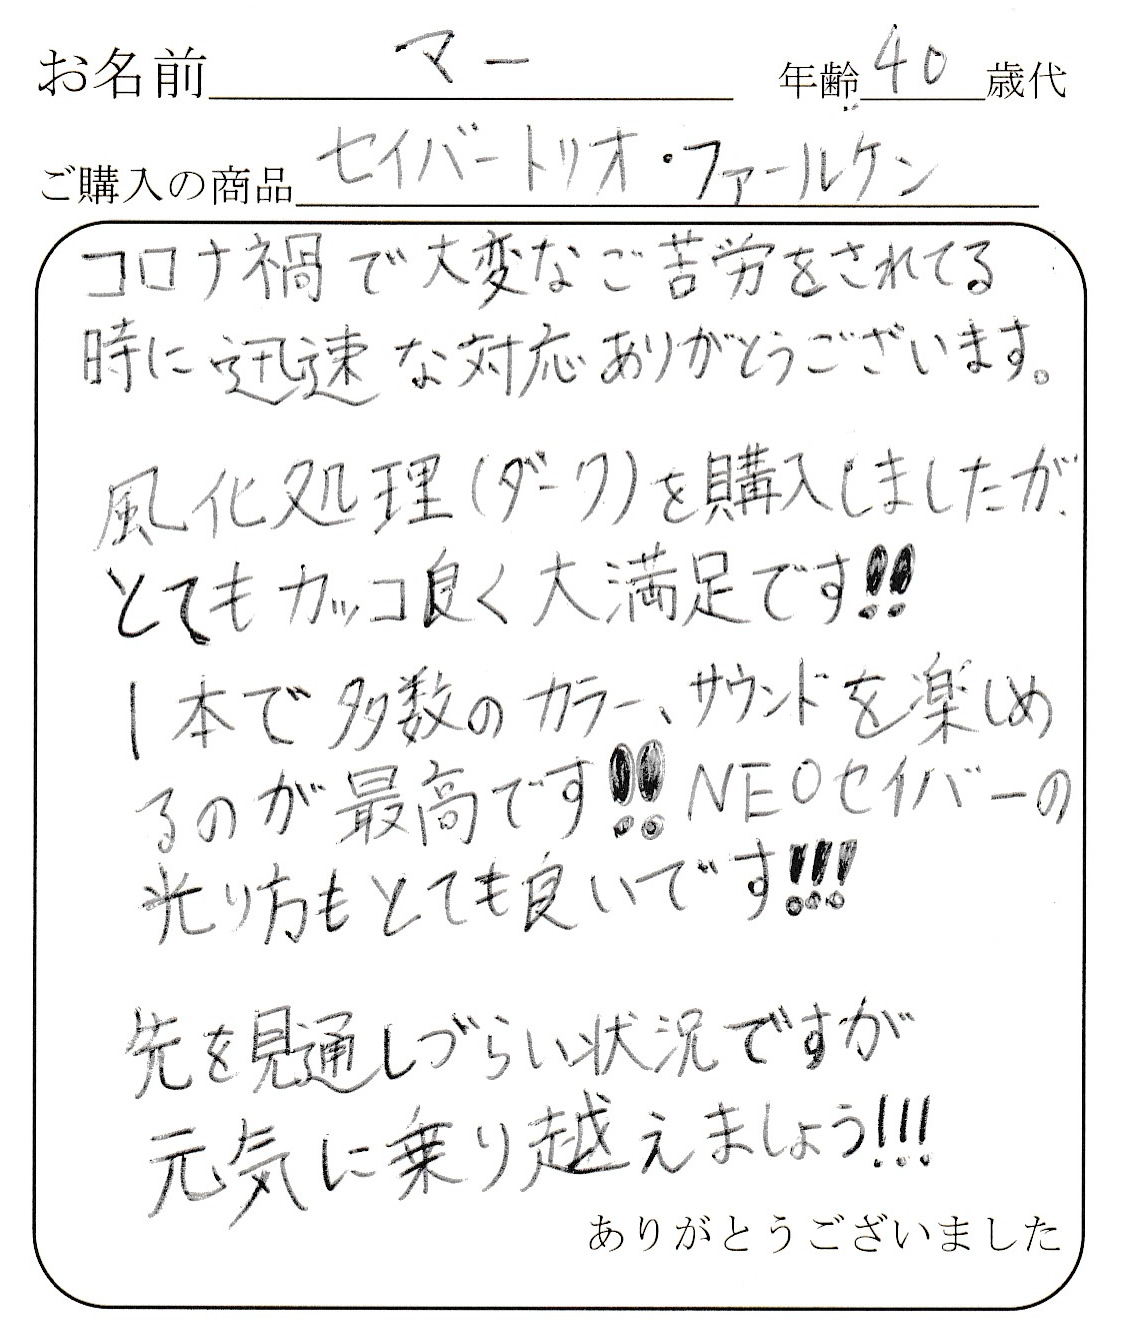 お名前 マー 年齢 40 歳代
ご購入の商品 セイバートリオ・ファールケン
コロナ禍で大変なご苦労をされてる
時に迅速な対応ありがとうございます。
風化処理(ダーク)を購入しましたが、
とてもカッコ良く大満足です!!
1本で多数のカラー、サウンドを楽しめ
るのが最高です!! NEOセイバーの
光り方もとても良いです!!!
先を見通しづらい状況ですが
元気に乗り越えましょう!!!
ありがとうございました